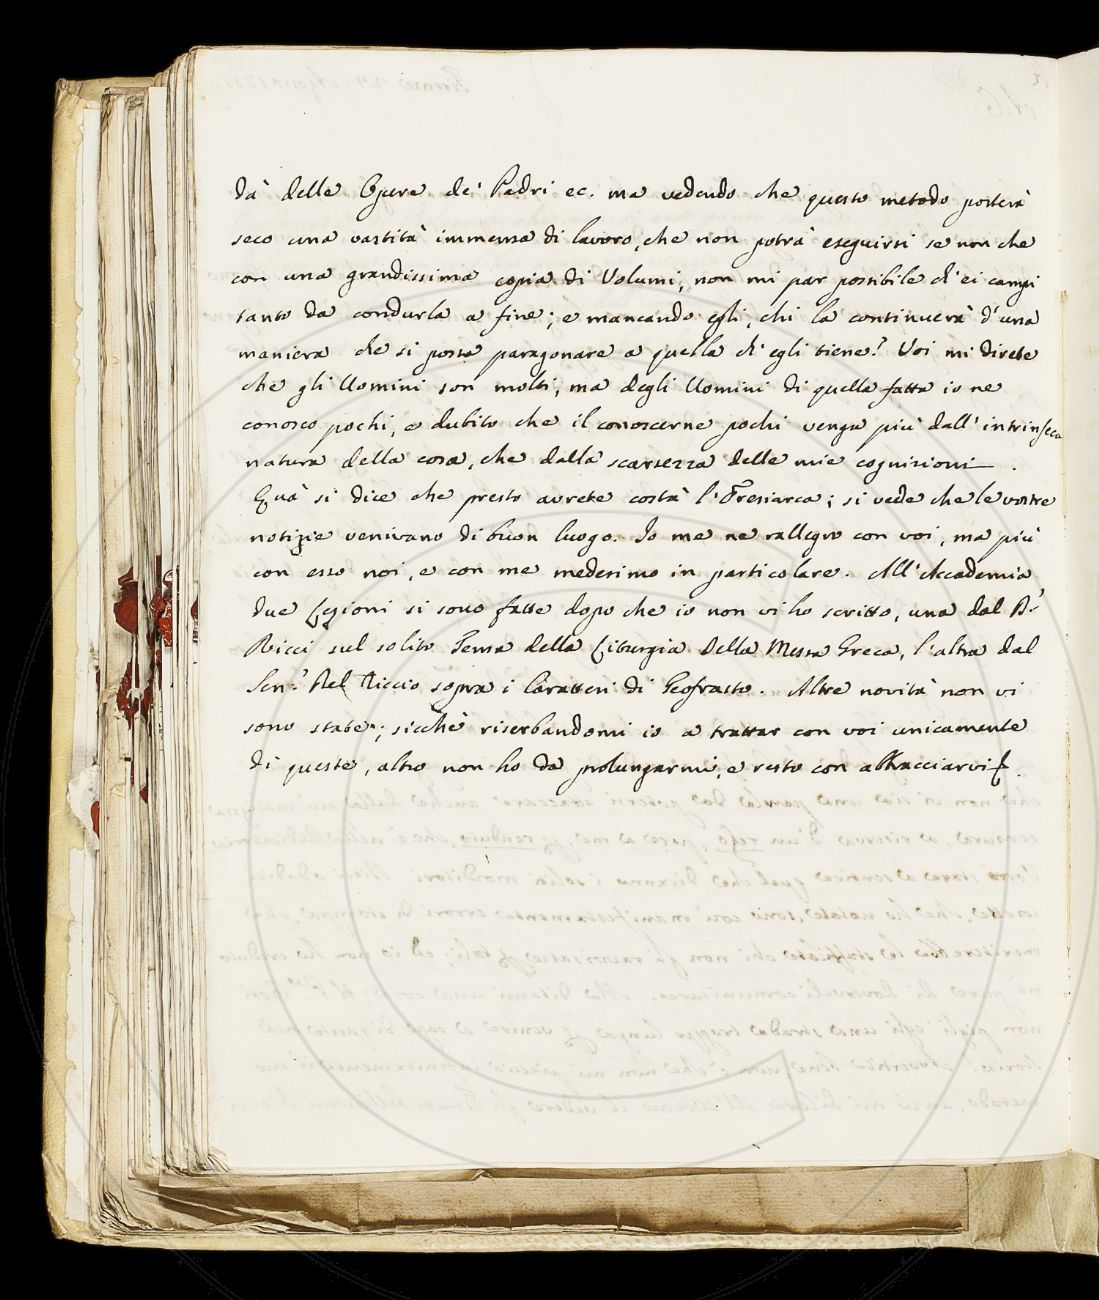 dà delle Opere de' Padri ec. ma vedendo che questo metodo porterà
seco una vastità immensa di lavoro, che non potrà eseguirsi se non che
con una grandissima copia di Volumi, non mi par possibile ch'ei campi
tanto da condurla a fine; e mancando egli, chi la continuerà d'una
maniera che si possa paragonare a quella ch'egli tiene? Voi mi direte
che gli Uomini son molti; ma degli Uomini di quella fatta io ne
conosco pochi, e dubito che il conoscerne pochi venga più dall'intrinseca
natura della cosa, che dalla scarsezza delle mie cognizioni.
Quà si dice che presto avrete costà l'Eresiarca; si vede che le vostre
notizie venivano di buon luogo. Io me ne rallegro con voi, ma più
con esso noi, e con me medesimo in particolare. All'Accademia
due Lezioni si sono fatte dopo che io non vi ho scritto, una dal P.
Ricci sul solito Tema della Liturgia della Messa Greca, l'altra dal
Sen.r Del Riccio sopra i Caratteri di Teofrasto. Altre novità non vi
sono state; sicchè riserbandomi io a trattar con voi unicamente
di queste, altro non ho da prolungarmi, e resto con abbracciarvi